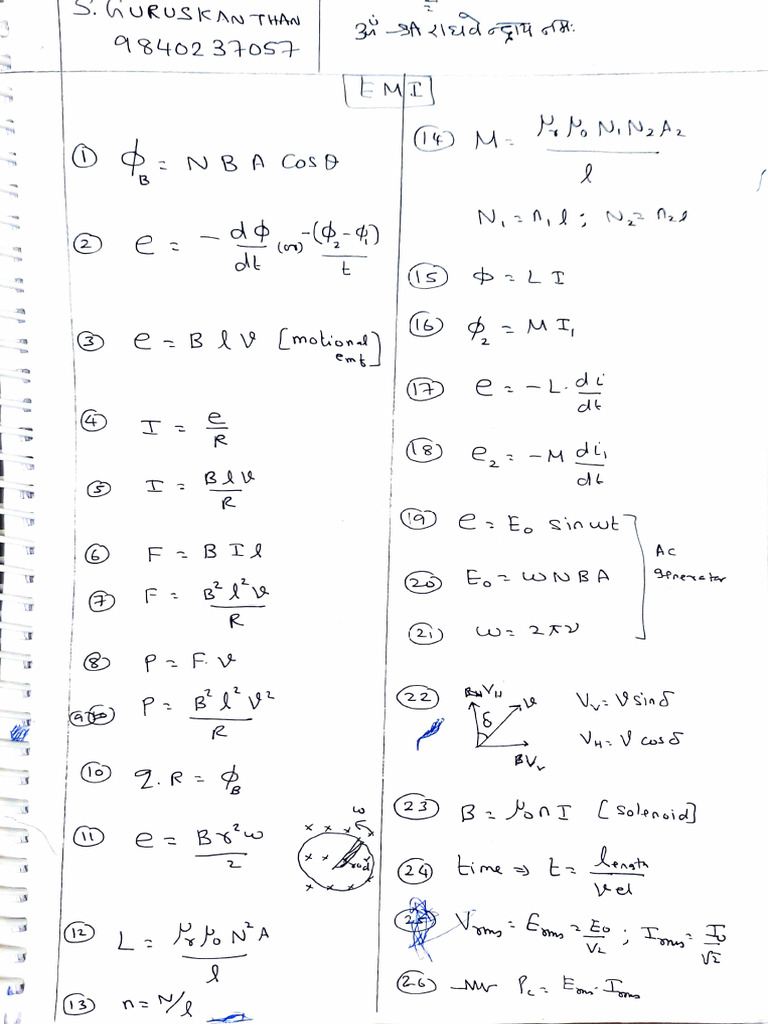 S. GURUSKANTHAN
9840237057
ॐ श्री राघवेन्द्राय नमः
EMI
① ϕ_B = N B A cos θ
② e = - dϕ/dt (or) -(ϕ₂ - ϕ₁)/t
③ e = B l v [motional emf]
④ I = e/R
⑤ I = B l v / R
⑥ F = B I l
⑦ F = B² l² v / R
⑧ P = F. v
⑨ P = B² l² v² / R
⑩ q. R = ϕ_B
⑪ e = B r² ω / 2
ω
rod
⑫ L = μr μ₀ N² A / l
⑬ n = N/l
⑭ M = μr μ₀ N₁ N₂ A₂ / l
N₁ = n₁ l ; N₂ = n₂ l
⑮ ϕ = L I
⑯ ϕ₂ = M I₁
⑰ e = - L. di/dt
⑱ e₂ = - M di₁/dt
⑲ e = E₀ sin ωt
⑳ E₀ = ω N B A
㉑ ω = 2πν
AC generator
㉒ V_H v δ B V_v
V_v = V sin δ
V_H = V cos δ
㉓ B = μ₀ n I [solenoid]
㉔ time ⇒ t = length / vel
㉕ V rms = E rms = E₀/√2 ; I rms = I₀/√2
㉖ P = E rms. I rms